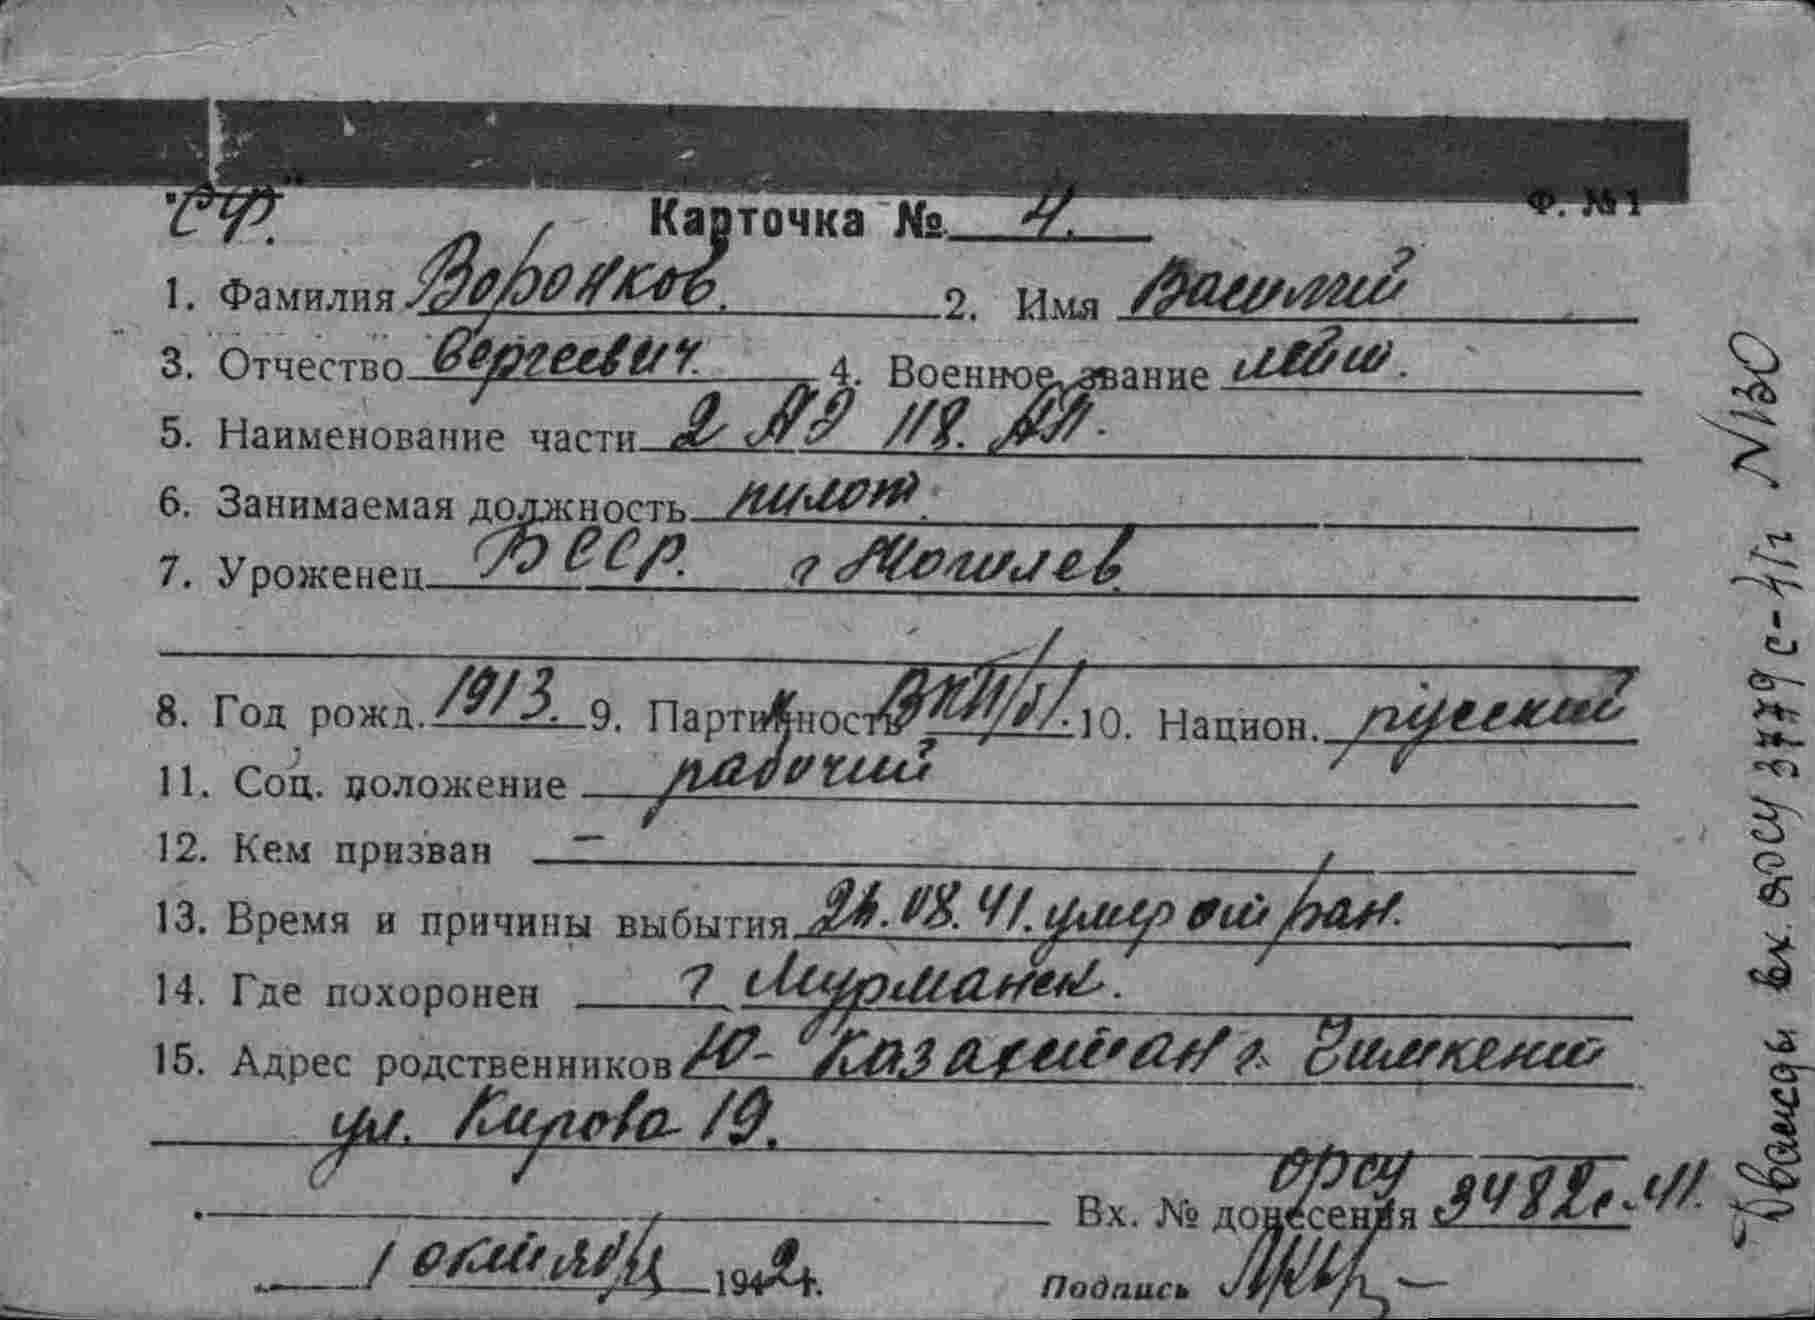 "СФ." Карточка № 4. Ф. №1
1. Фамилия Воронков. 2. Имя Василий
3. Отчество Сергеевич. 4. Военное звание лейт.
5. Наименование части 2 АЭ 118. АП.
6. Занимаемая должность пилот.
7. Уроженец БССР. г Могилев.
8. Год рожд. 1913. 9. Партийность ВКП/б/. 10. Национ. русский
11. Соц. положение рабочий
12. Кем призван —
13. Время и причины выбытия 08.41. умер от ран.
14. Где похоронен г Мурманск.
15. Адрес родственников Ю- Казахстан г. Чимкент
ул. Кирова 19.
орсу
Вх. № донесения 3482с.41.
1 октября 1942г.
Подпись
Дважды вх. орсу 3779с-41г N130